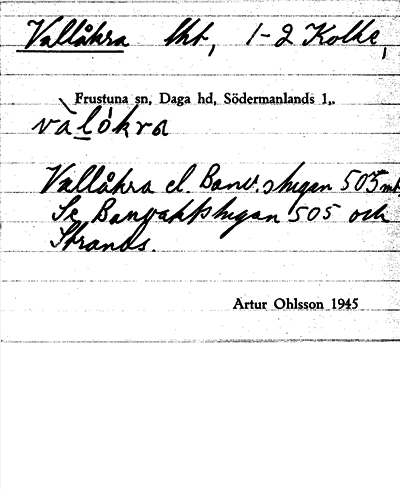 Vallåkra tht, 1-2 Kolke,
Frustuna sn, Daga hd, Södermanlands l.,
vàlókra
Vallåkra el. Banv.stugan 505 mt.
Se Banvaktstugan 505 och
Strands.
Artur Ohlsson 1945